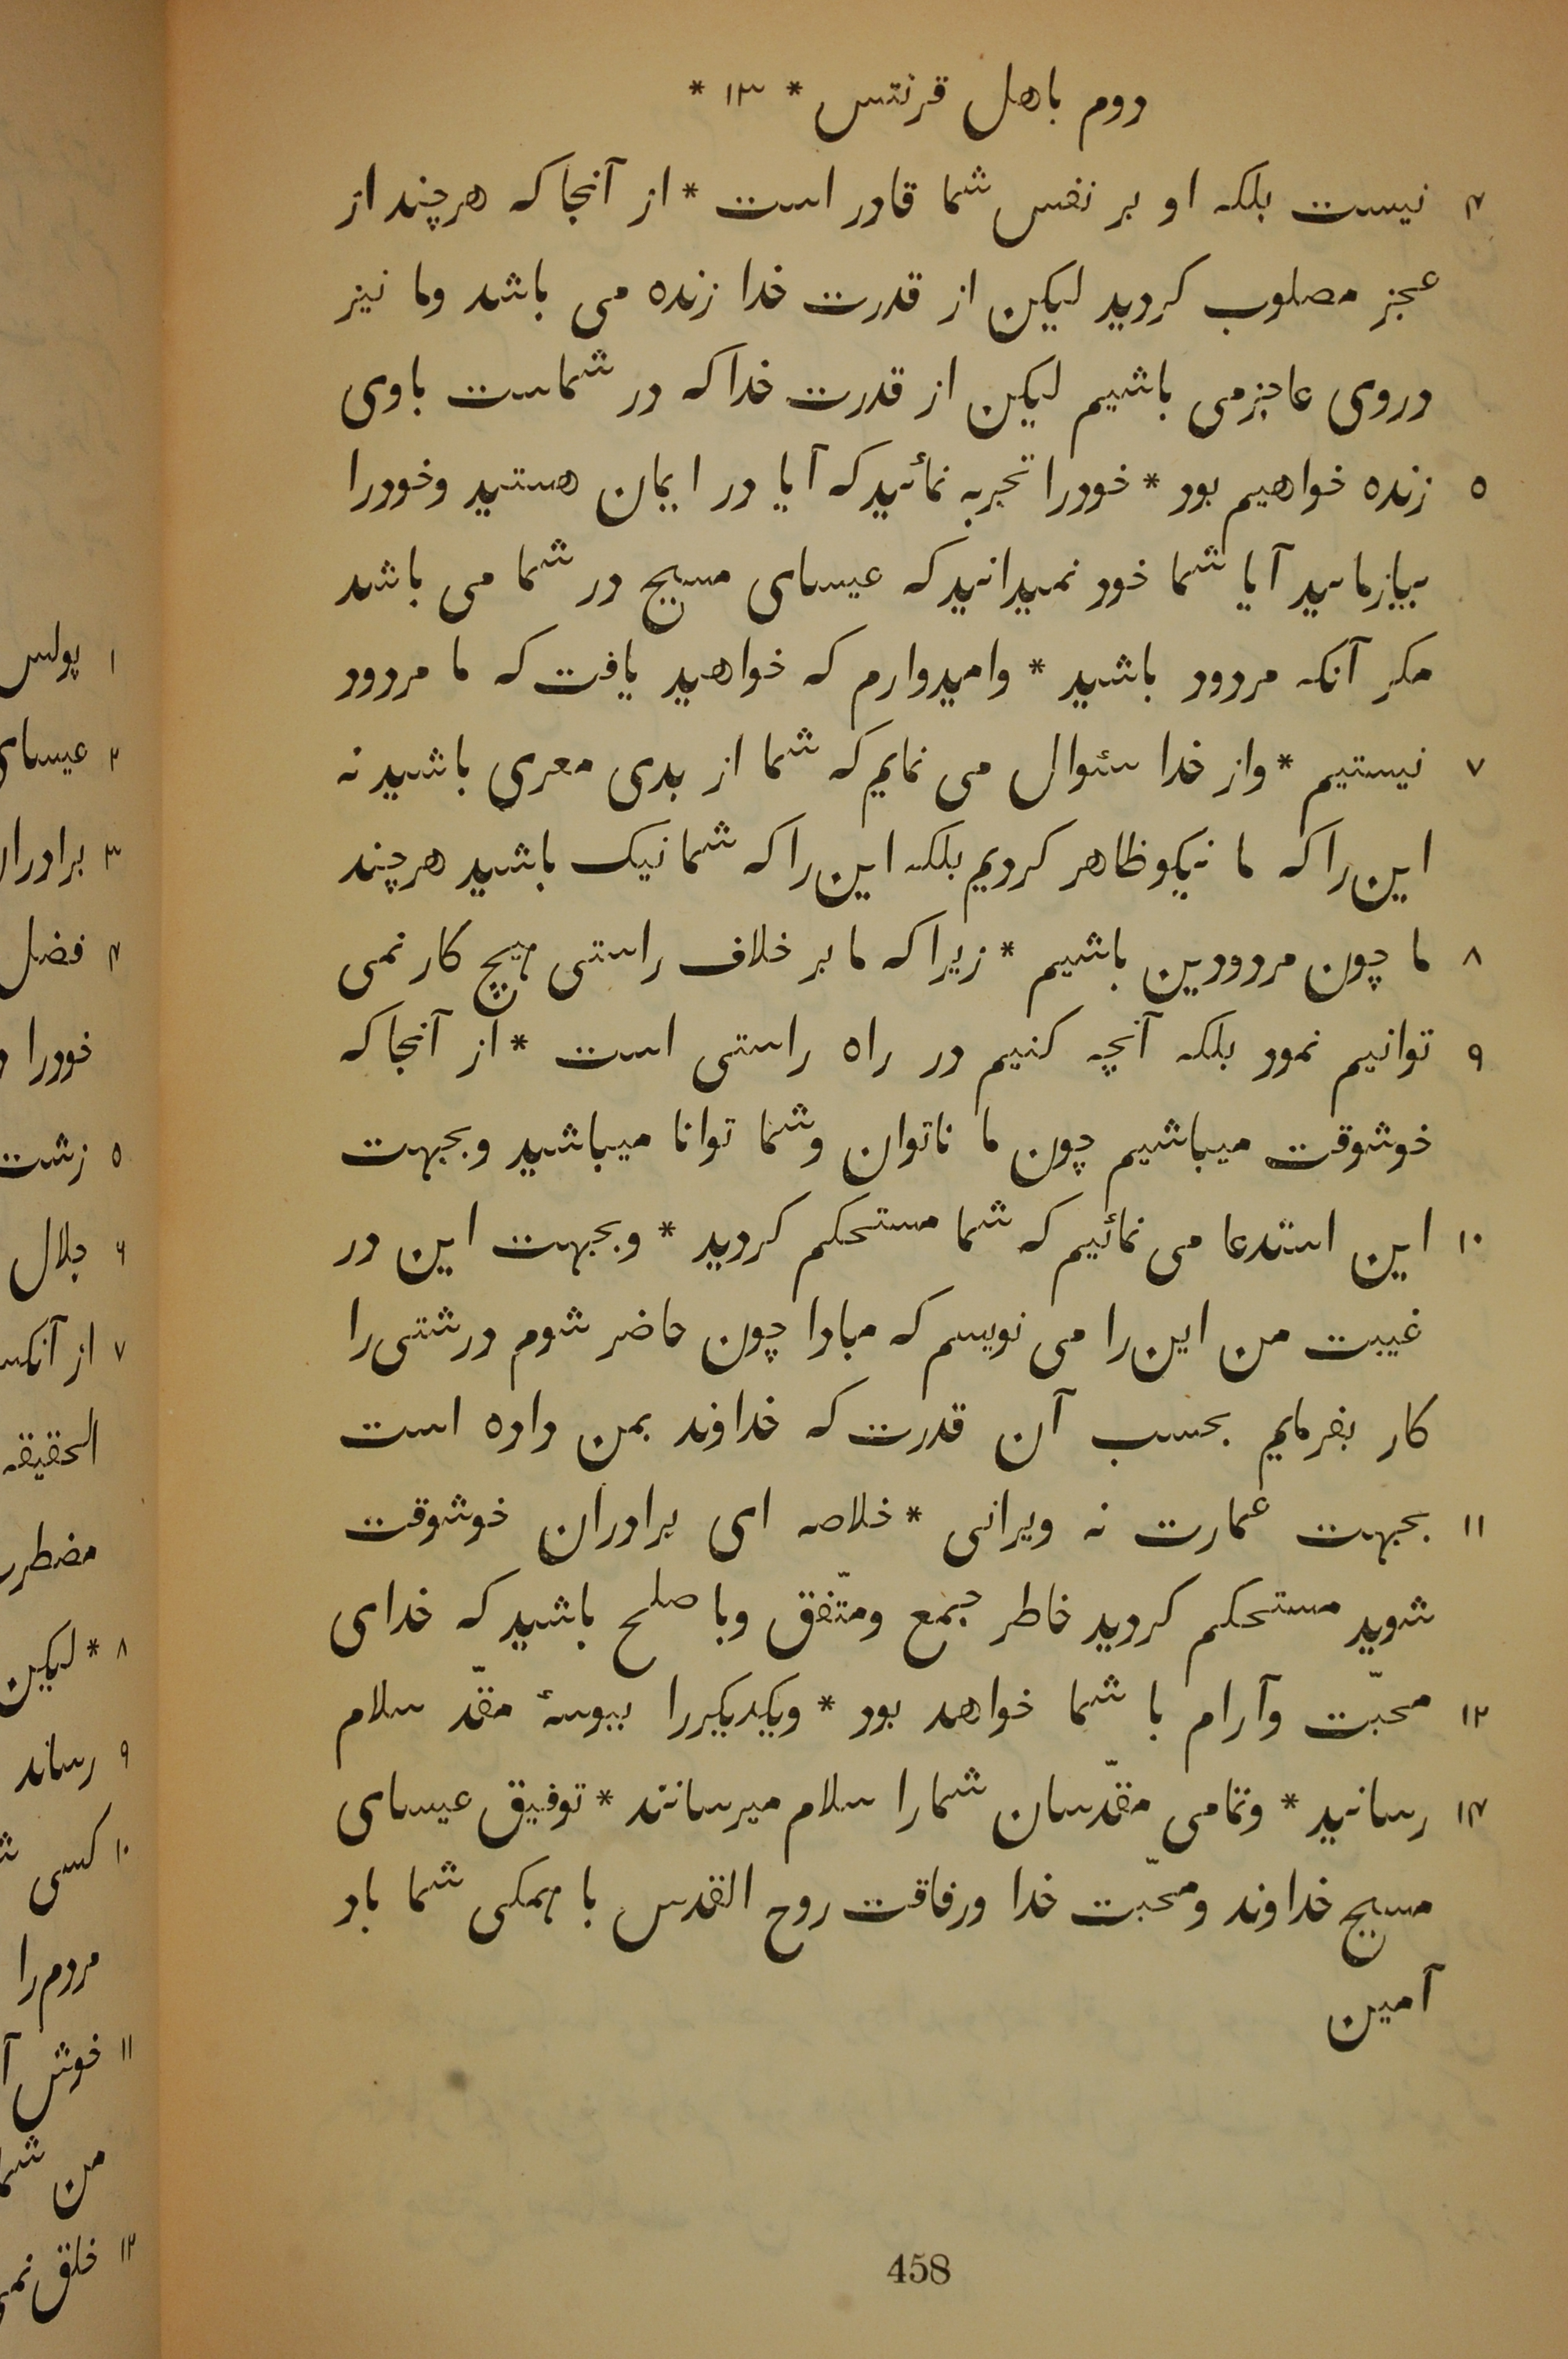 دوم باهل قرنتس * ١٣ *
٤ نیست بلکه او بر نفس شما قادر است * از آنجا که هرچند از
عجز مصلوب کردید لیکن از قدرت خدا زنده می باشد وما نیز
دروی عاجزمی باشیم لیکن از قدرت خدا که در شماست باوی
٥ زنده خواهیم بود * خودرا تجربه نمائید که آیا در ایمان هستید وخودرا
بیازمائید آیا شما خود نمیدانید که عیسای مسیح در شما می باشد
مکر آنکه مردود باشید * وامیدوارم که خواهید یافت که ما مردود
٧ نیستیم * واز خدا سئوال می نمایم که شما از بدی معری باشید نه
این را که ما نیکو ظاهر کردیم بلکه این را که شما نیک باشید هرچند
٨ ما چون مردودین باشیم * زیرا که ما بر خلاف راستی هیچ کار نمی
٩ توانیم نمود بلکه آنچه کنیم در راه راستی است * از آنجا که
خوشوقت میباشیم چون ما ناتوان وشما توانا میباشید وبجهت
١٠ این استدعا می نمائیم که شما مستحکم کردید * وبجهت این در
غیبت من این را می نویسم که مبادا چون حاضر شوم درشتی را
کار بفرمایم بحسب آن قدرت که خداوند بمن داده است
١١ بجهت عمارت نه ویرانی * خلاصه ای برادران خوشوقت
شوید مستحکم کردید خاطر جمع ومتّفق وبا صلح باشید که خدای
١٢ محبّت وآرام با شما خواهد بود * ویکدیکررا ببوسهٔ مقدّ سلام
١٤ رسانید * وتمامی مقدّسان شمارا سلام میرسانند * توفیق عیسای
مسیح خداوند ومحبّت خدا ورفاقت روح القدس با همکی شما باد
آمین
458
١ پولس
٢ عیسای
٣ برادران
٤ فضل
خودرا
٥ زشت
٦ جلال
٧ از آنکس
الحقیقه
مضطرب
٨ * لیکن
٩ رساند
١٠ کسی
مردم را
١١ خوش
من شما
١٢ خلق